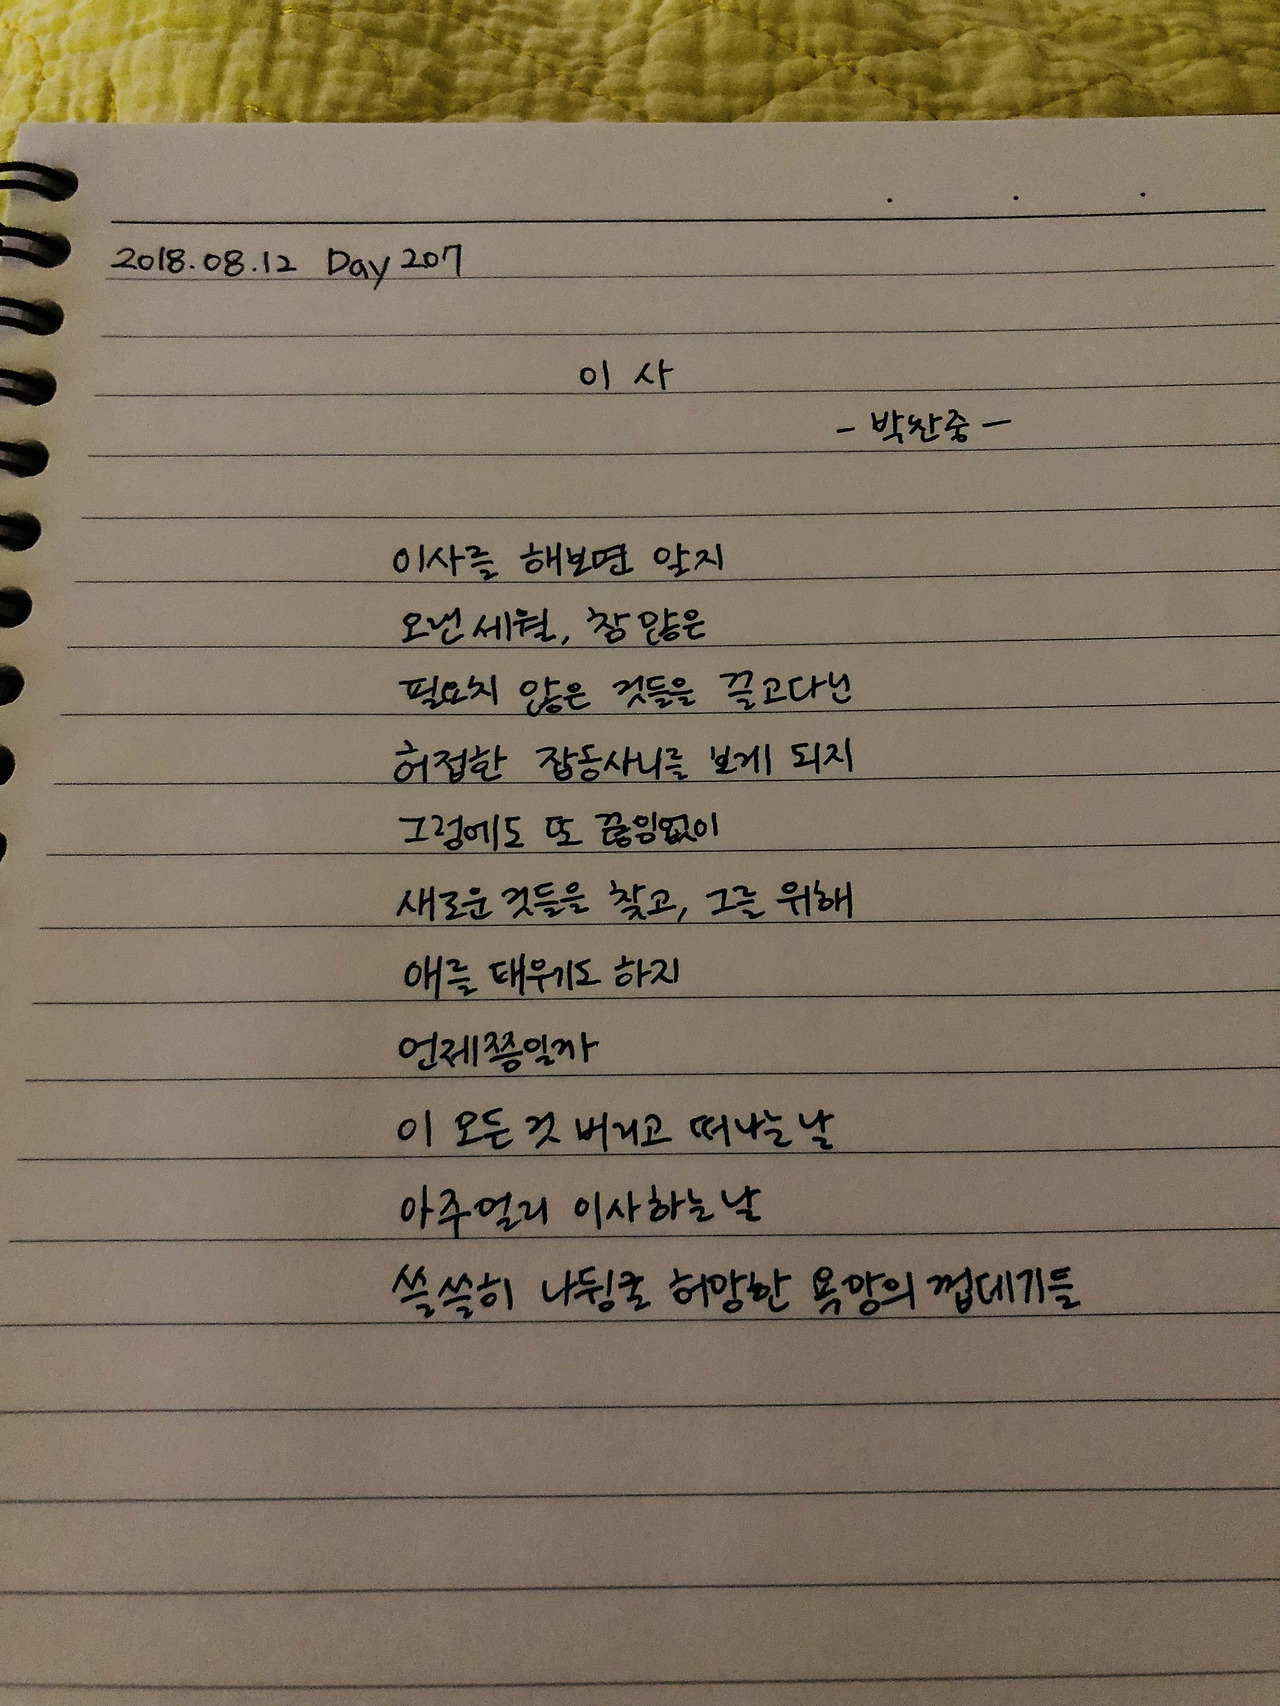 2018.08.12 Day 207
이 사
- 박찬중 -
이사를 해보면 알지
오랜 세월, 참 많은
필요치 않은 것들을 끌고다닌
허접한 잡동사니를 보게 되지
그럼에도 또 끊임없이
새로운 것들을 찾고, 그를 위해
애를 태우기도 하지
언제쯤일까
이 모든 것 버리고 떠나는 날
아주멀리 이사하는 날
쓸쓸히 나뒹굴 허망한 욕망의 껍데기들